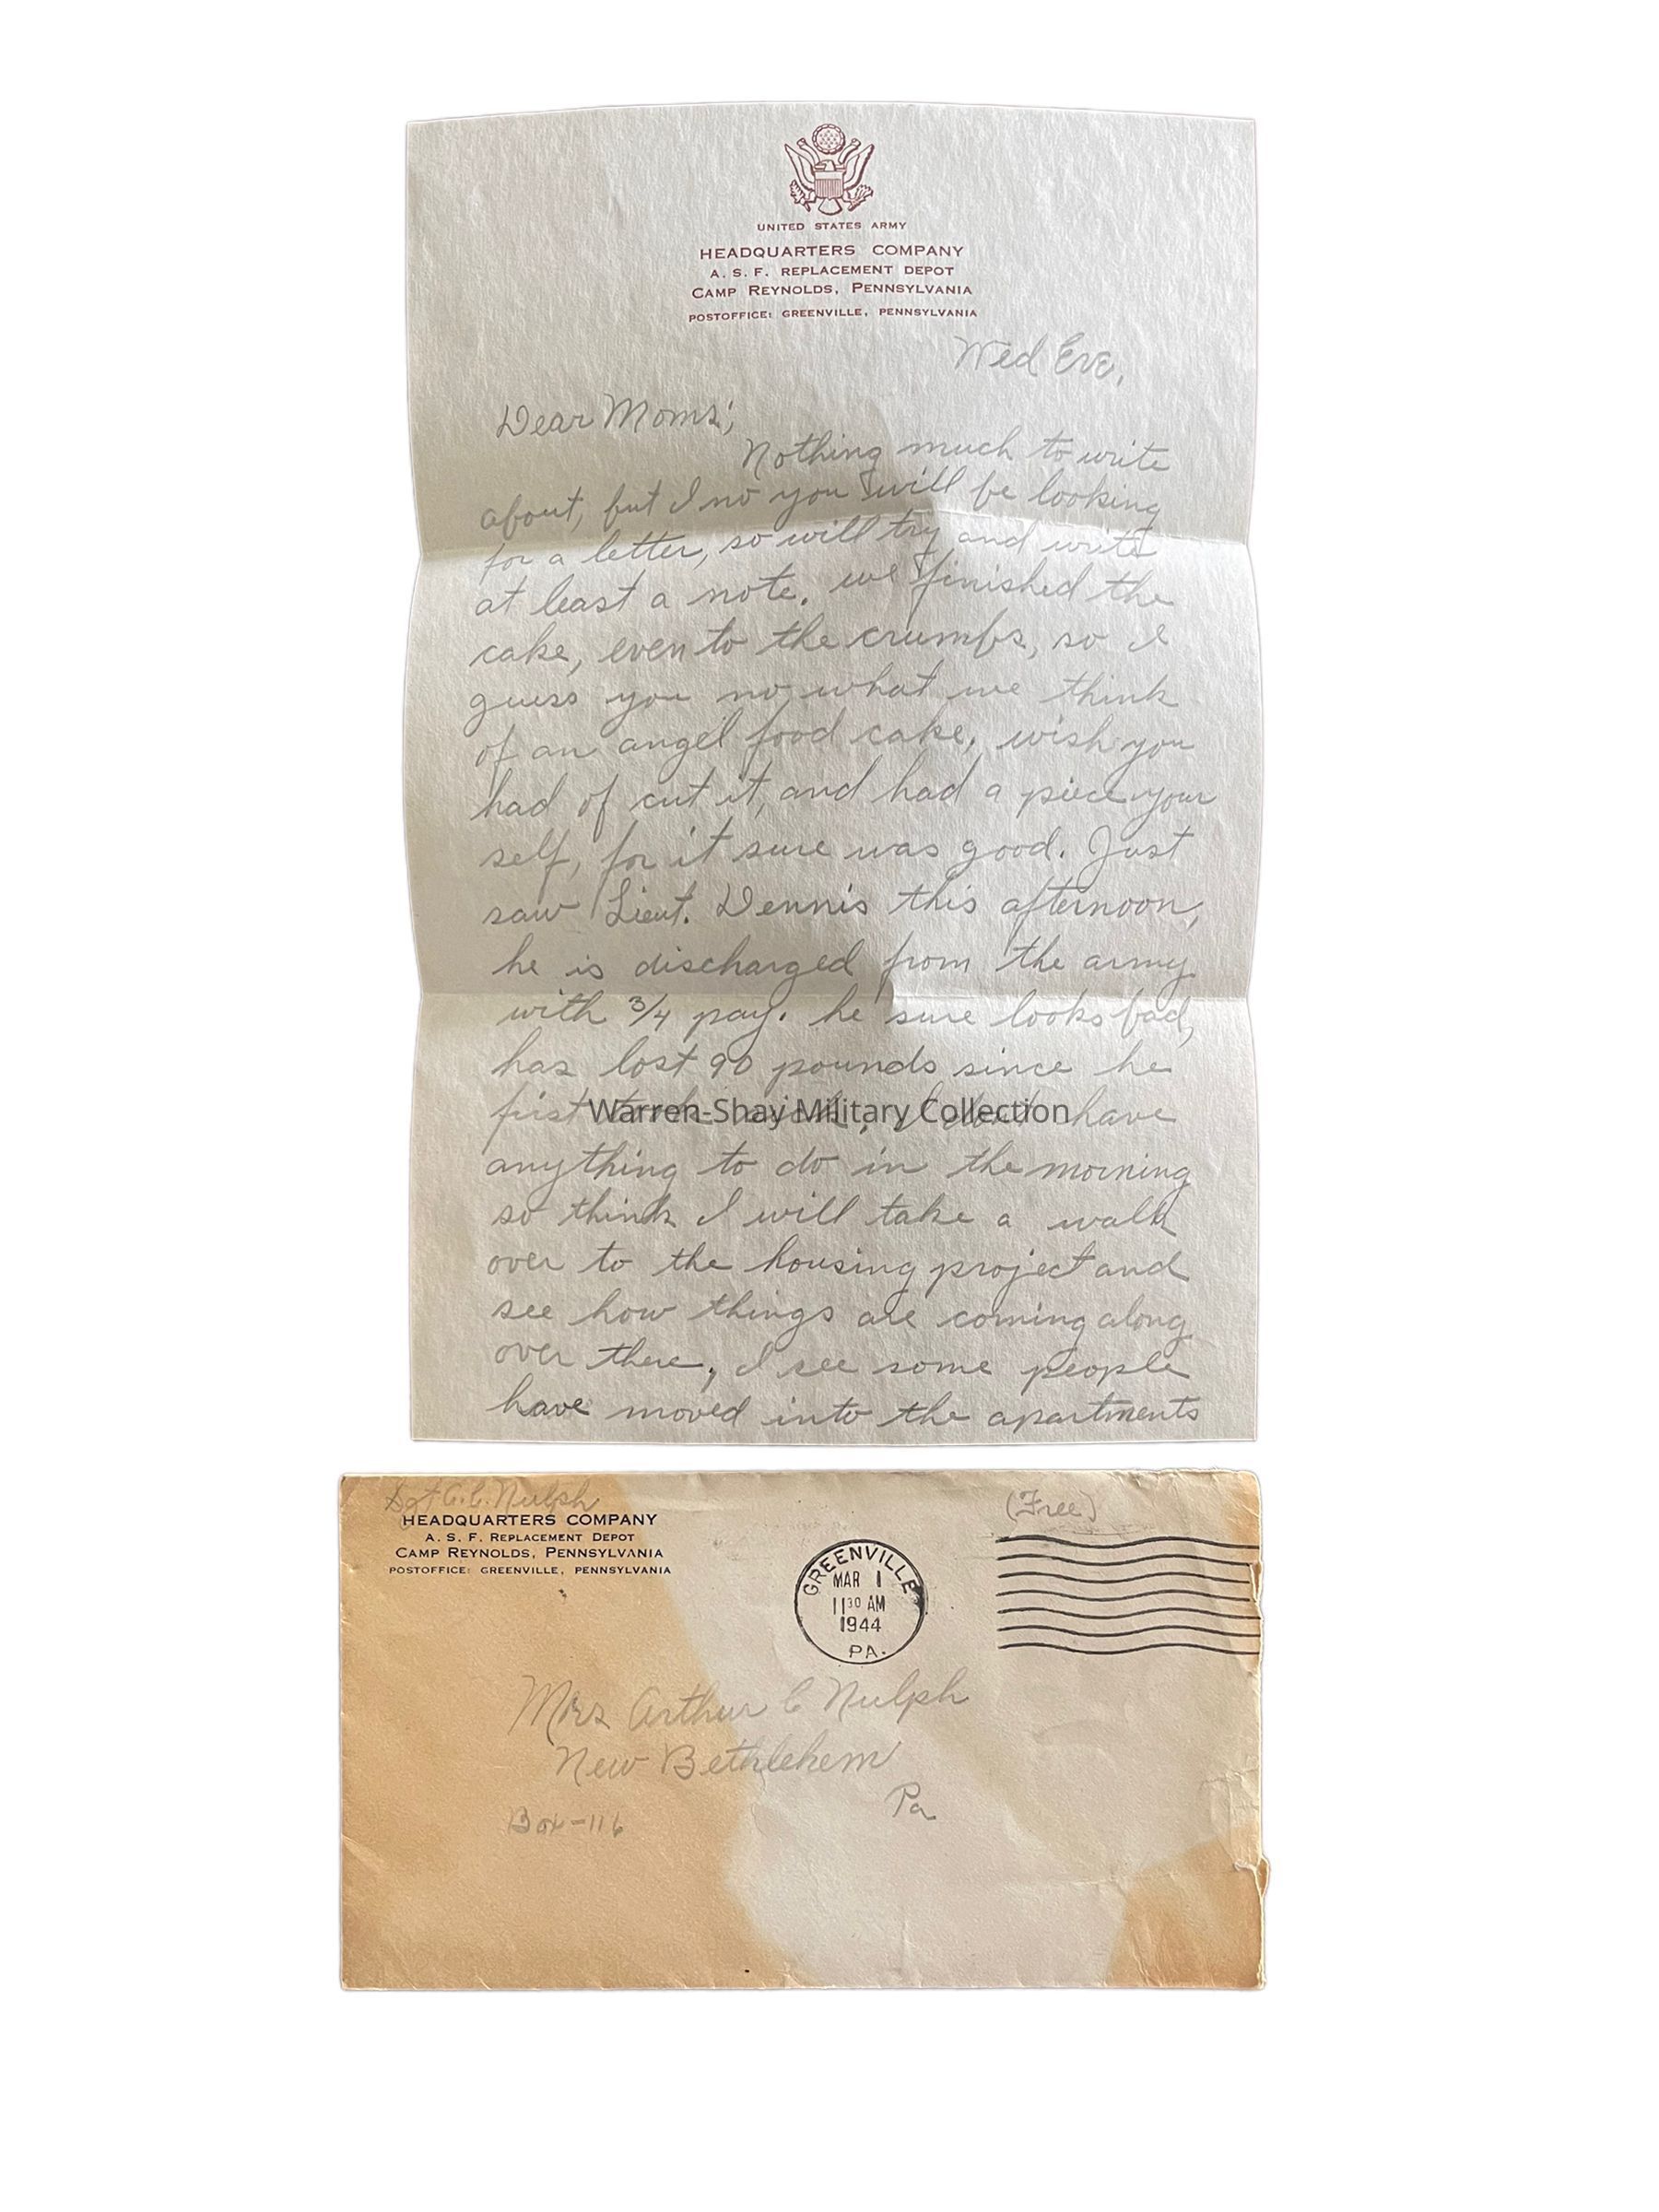 UNITED STATES ARMY
HEADQUARTERS COMPANY
A. S. F. REPLACEMENT DEPOT
CAMP REYNOLDS, PENNSYLVANIA
POSTOFFICE: GREENVILLE, PENNSYLVANIA
Wed Eve,
Dear Moms;
Nothing much to write
about, but I no you will be looking
for a letter, so will try and write
at least a note. we finished the
cake, even to the crumbs, so I
guess you no what we think
of an angel food cake, wish you
had of cut it, and had a piece your
self, for it sure was good. Just
saw Lieut. Dennis this afternoon,
he is discharged from the army
with 3/4 pay. he sure looks bad,
has lost 90 pounds since he
first took sick, I don't have
Warren-Shay Military Collection
anything to do in the morning
so think I will take a walk
over to the housing project and
see how things are coming along
over there, I see some people
have moved into the apartments
Sgt A.C. Nulph
HEADQUARTERS COMPANY
A. S. F. REPLACEMENT DEPOT
CAMP REYNOLDS, PENNSYLVANIA
POSTOFFICE: GREENVILLE, PENNSYLVANIA
(Free)
GREENVILLE
MAR 1
11 30 AM
1944
PA.
Mrs Arthur C Nulph
New Bethlehem
Pa
Box-116